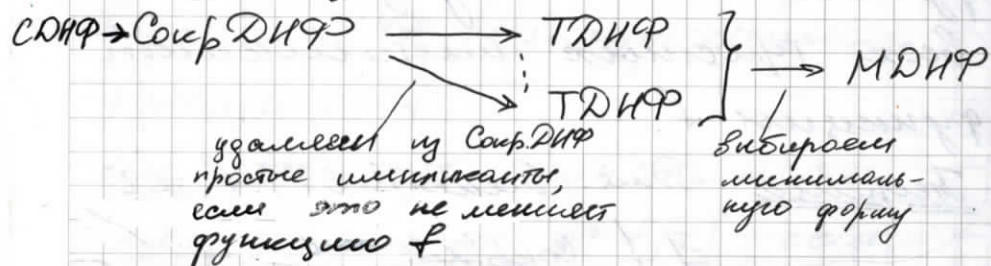 СДНФ → Сокр ДНФ → ТДНФ
ТДНФ
→ МДНФ
удаляем из Сокр.ДНФ
простые импликанты,
если это не меняет
функцию f
выбираем
минималь-
ную форму